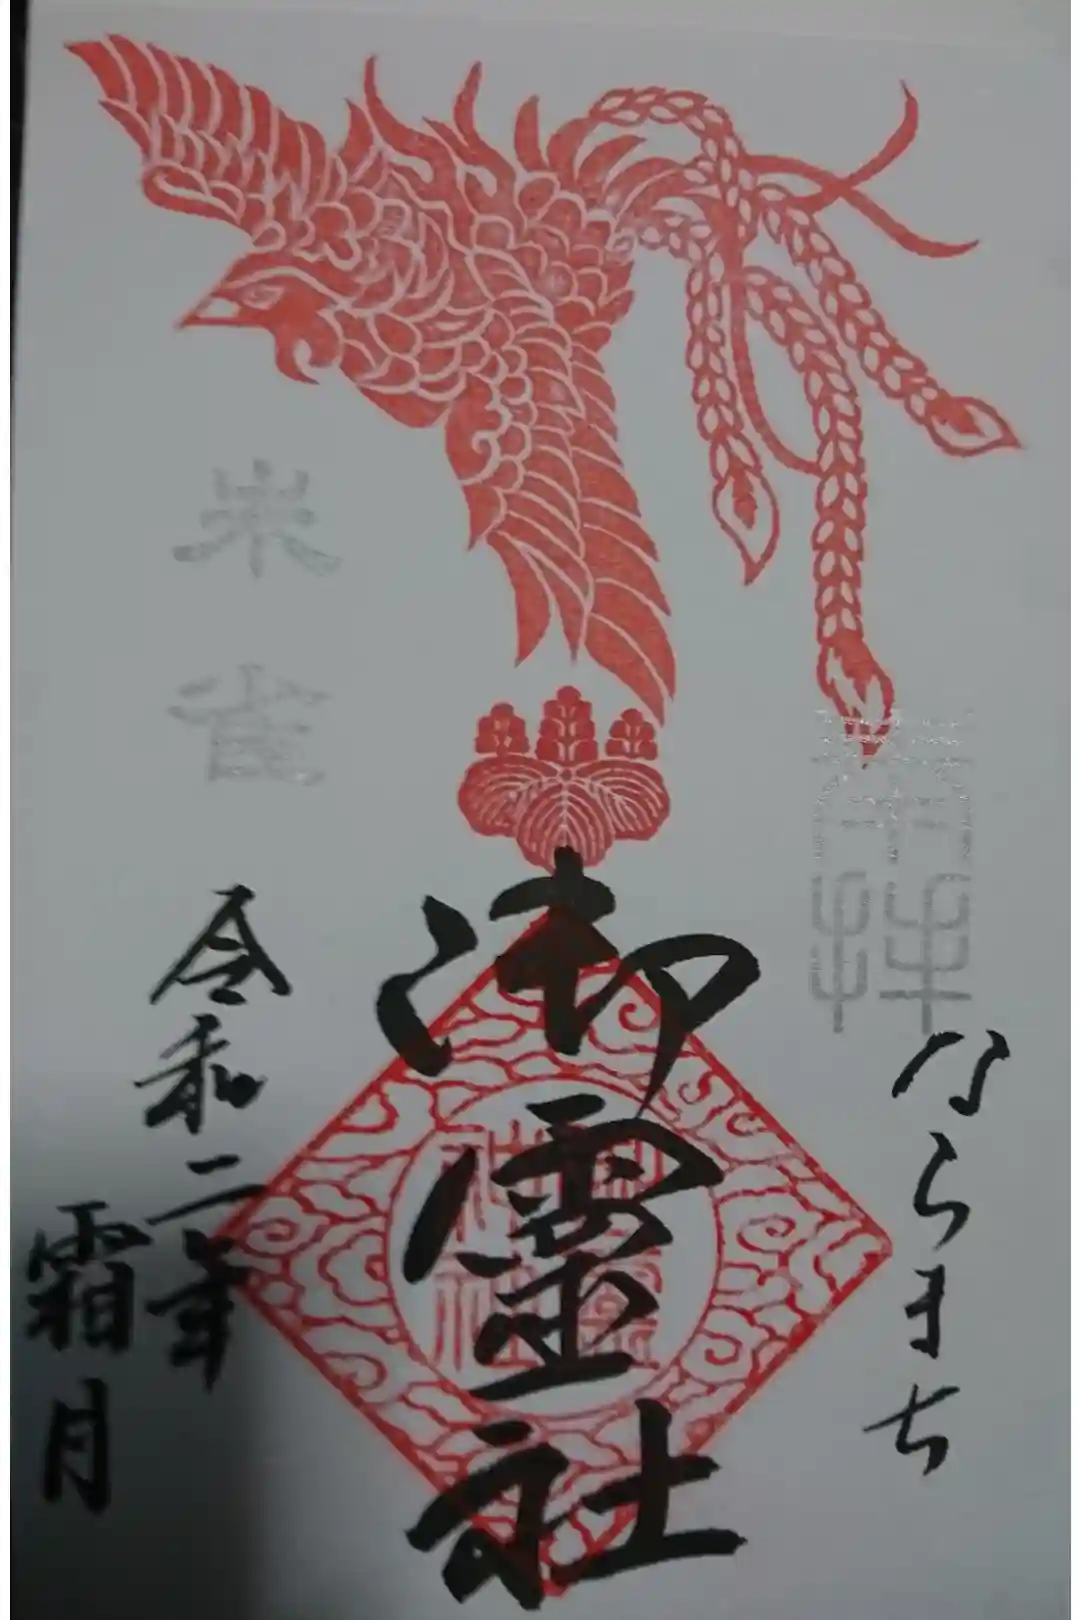 奉拝
ならまち
御靈社
朱雀
令和二年
霜月